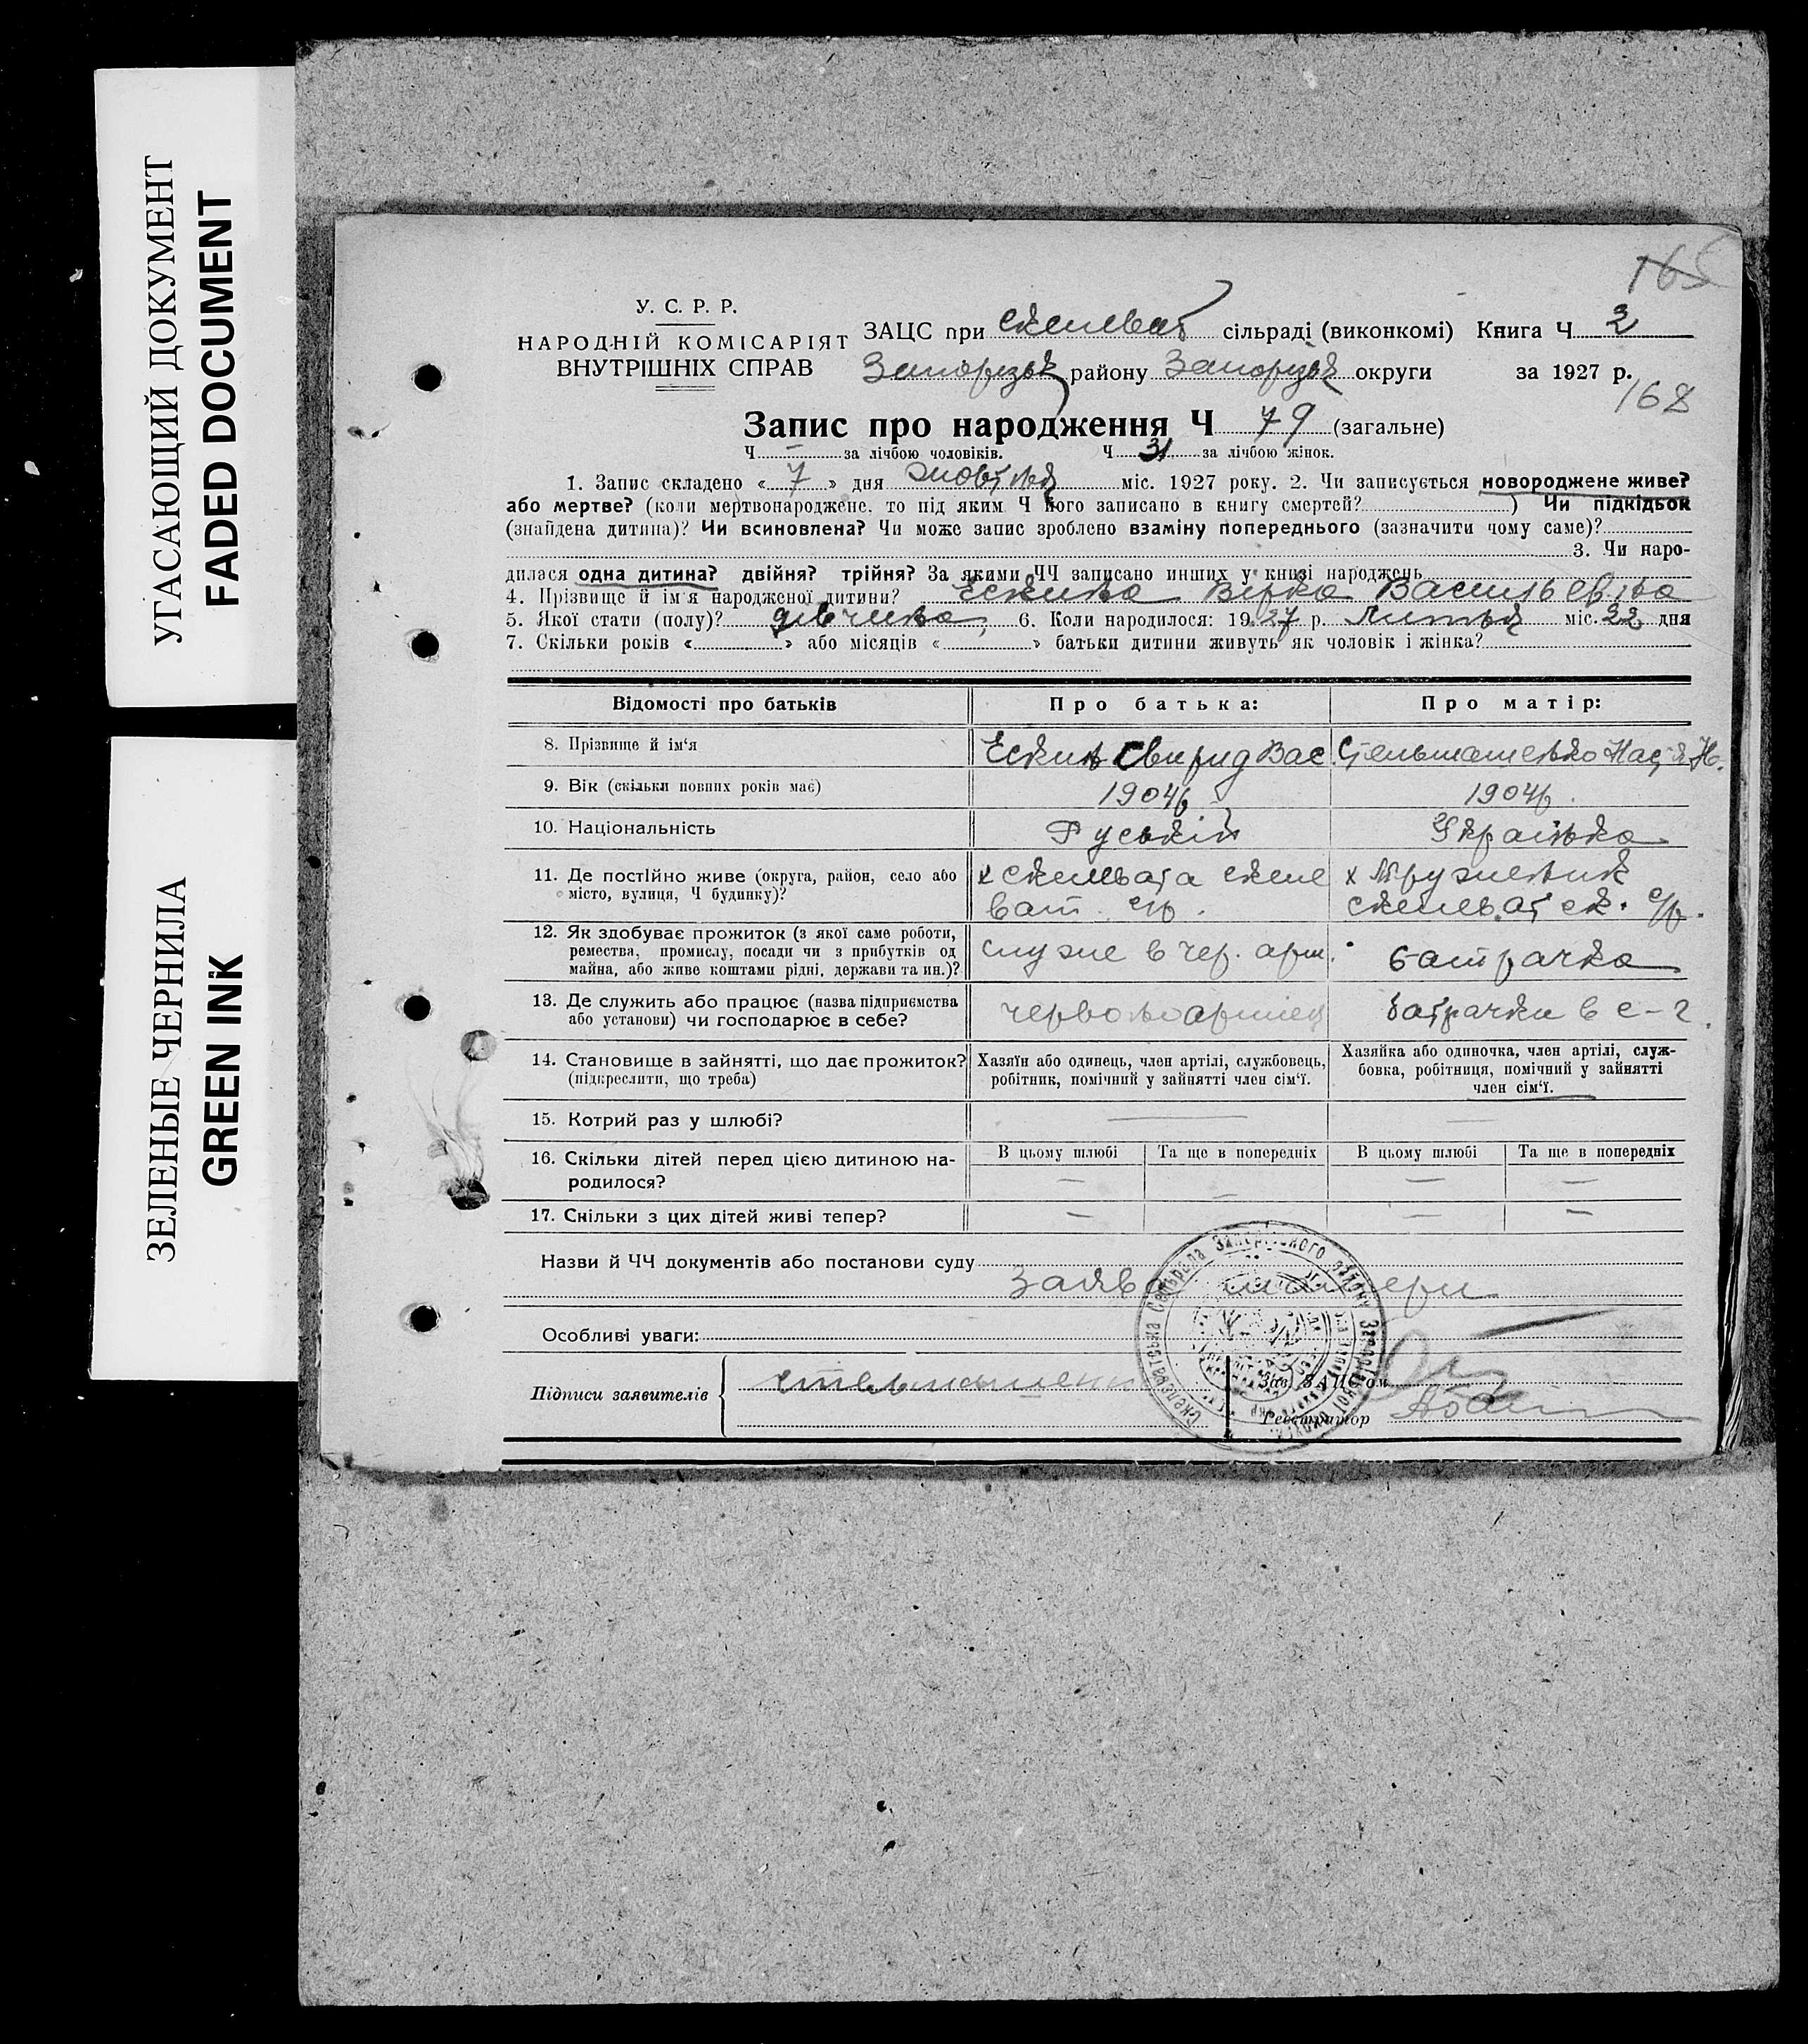 УГАСАЮЩИЙ ДОКУМЕНТ
FADED DOCUMENT
ЗЕЛЕНЫЕ ЧЕРНИЛА
GREEN INK
165
У. С. Р. Р.
НАРОДНІЙ КОМІСАРІЯТ
ВНУТРІШНІХ СПРАВ
ЗАЦС при Скелеват сільраді (виконкомі) Книга Ч 2
Запорізьк району Запорізьк округи за 1927 р.
168
Запис про народження Ч 79 (загальне)
Ч — за лічбою чоловіків. Ч 31 за лічбою жінок.
1. Запис складено «7» дня жовтня міс. 1927 року. 2. Чи записується новороджене живе?
або мертве? (коли мертвонароджене, то під яким Ч його записано в книгу смертей? ) Чи підкідьок
(знайдена дитина)? Чи всиновлена? Чи може запис зроблено взаміну попереднього (зазначити чому саме)?
3. Чи наро-
дилася одна дитина? двійня? трійня? За якими ЧЧ записано инших у книзі народжень
4. Прізвище й ім'я народженої дитини? Ескина Вірка Васильевна
5. Якої стати (полу)? дівчина, 6. Коли народилося: 1927 р. Липня міс. 22 дня
7. Скільки років « » або місяців « » батьки дитини живуть як чоловік і жінка?
Відомості про батьків Про батька: Про матір:
8. Прізвище й ім'я Ескин Свирид Вас. Стельмашенко Надя Н.
9. Вік (скільки повних років має) 1904р 1904р.
10. Національність Руській Українка
11. Де постійно живе (округа, район, село або
місто, вулиця, Ч будинку)?
х Скелевата Скеле
ват. с/р.
х Труженик
Скелеватск. с/р.
12. Як здобуває прожиток (з якої саме роботи,
ремества, промислу, посади чи з прибутків од
майна, або живе коштами рідні, держави та ин.)?
служе в чер. арм. батрачка
13. Де служить або працює (назва підприємства
або установи) чи господарює в себе?
червоноармец батрачка в с-г.
14. Становище в зайнятті, що дає прожиток?
(підкреслити, що треба)
Хазяїн або одинець, член артілі, службовець,
робітник, помічний у зайнятті член сім'ї.
Хазяйка або одиночка, член артілі, служ-
бовка, робітниця, помічний у зайнятті
член сім'ї.
15. Котрий раз у шлюбі? — —
16. Скільки дітей перед цією дитиною на-
родилося?
В цьому шлюбі Та ще в попередніх В цьому шлюбі Та ще в попередніх
— — — —
17. Скільки з цих дітей живі тепер? — — —
Назви й ЧЧ документів або постанови суду
Заява матери
Особливі уваги:
Підписи заявителів Стельмашенк
Зав. ЗАЦС'ом
Реєстратор